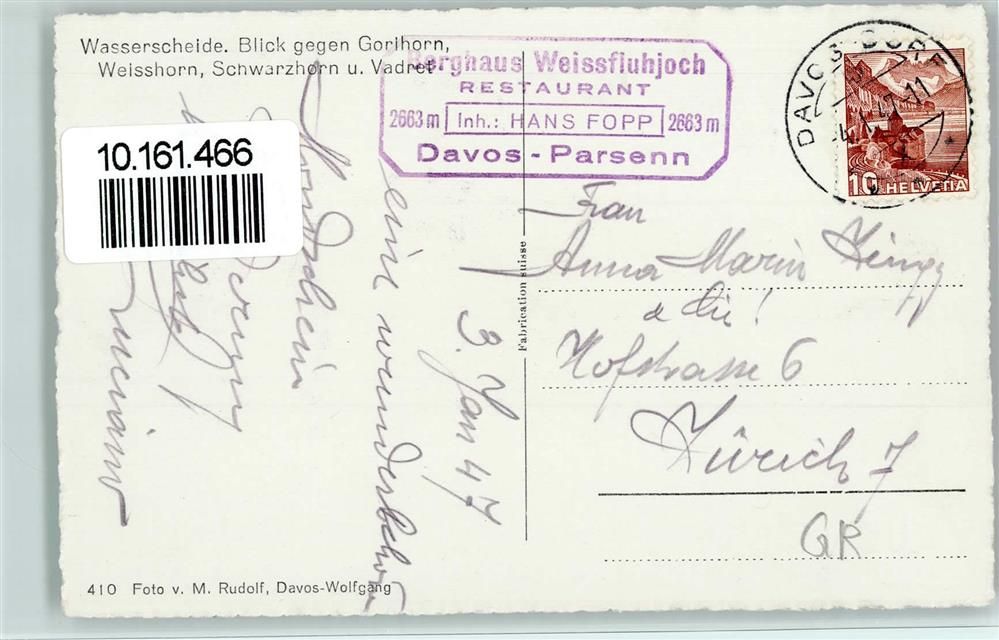 Wasserscheide. Blick gegen Gorihorn,
Weisshorn, Schwarzhorn u. Vadret
Berghaus Weissfluhjoch
RESTAURANT
2663 m Inh.: HANS FOPP 2663 m
Davos - Parsenn
DAVOS DORF
10 HELVETIA
10.161.466
3. Jan 47
ein wunderbchor
Mondschein
Fabrication suisse
Frau
Anna Marin Zingg
Hofstrasse 6
Zürich 7
GR
410 Foto v. M. Rudolf, Davos-Wolfgang